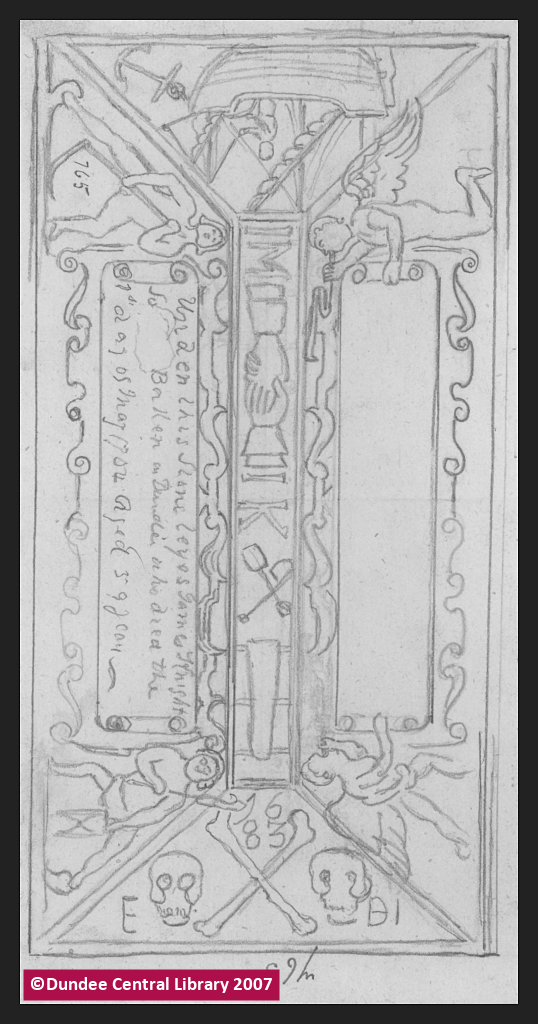 765
IM
II K
this Stone leyes James Knight
Baken in Dundei who died the
day of May Aged 59
1683
E
DI
©Dundee Central Library 2007